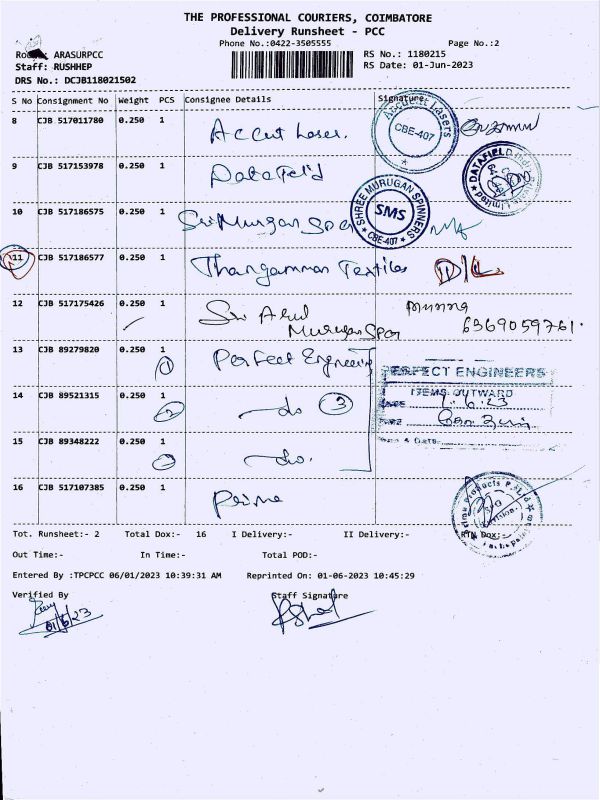 THE PROFESSIONAL COURIERS, COIMBATORE
Delivery Runsheet - PCC
Phone No.:0422-3505555 Page No.:2
ARASURPCC RS No.: 1180215
Staff: RUSHHEP RS Date: 01-Jun-2023
DRS No.: DCJB118021502
S No Consignment No Weight PCS Consignee Details Signature
8 CJB 517011780 0.250 1 Accut Laser. Accurent Lasers CBE-407
9 CJB 517153978 0.250 1 Datafeild DATAFIELD
10 CJB 517186575 0.250 1 Sri Murugan Spin SHREE MURUGAN SPINNERS SMS CBE-407
11 CJB 517186577 0.250 1 Thangamman Textiles D/L
12 CJB 517175426 0.250 1 Sri Arul
Murugan Spin 6369059761.
13 CJB 89279820 0.250 1 Perfect Engineering
1 PERFECT ENGINEERS
14 CJB 89521315 0.250 1 do 3 ITEMS OUTWARD
2 1.6.23
15 CJB 89348222 0.250 1 do.
3 Sign & Date
16 CJB 517107385 0.250 1 Prime
Tot. Runsheet:- 2 Total Dox:- 16 I Delivery:- II Delivery:- RTN Dox:-
Out Time:- In Time:- Total POD:-
Entered By :TPCPCC 06/01/2023 10:39:31 AM Reprinted On: 01-06-2023 10:45:29
Verified By Staff Signature
01/6/23